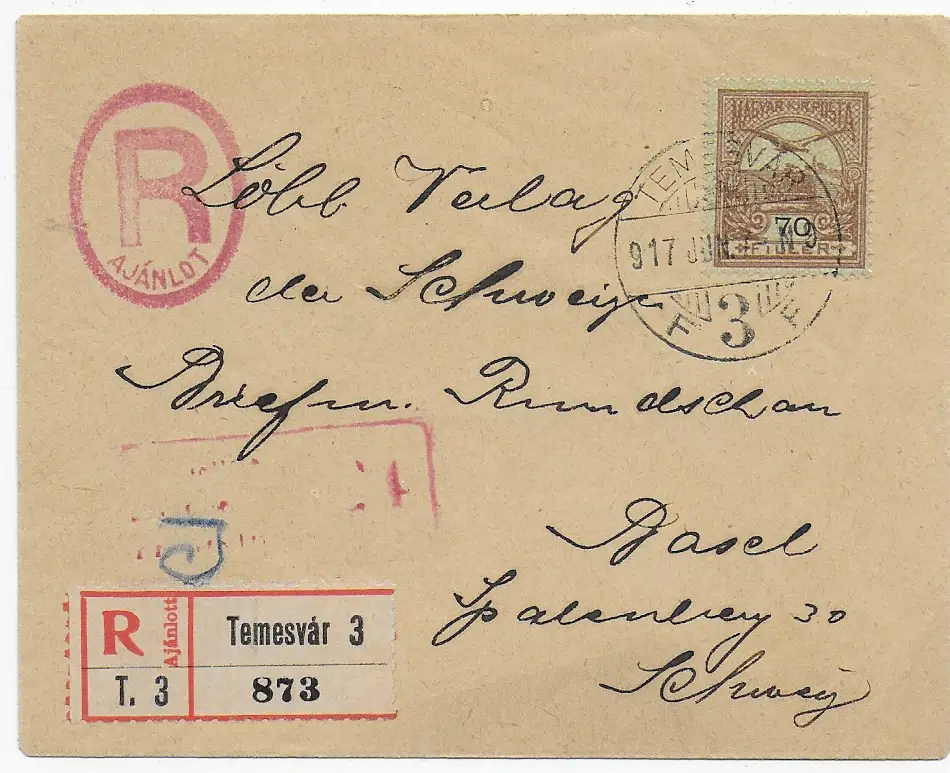 R
AJÁNLOT
MAGYAR KIR. POSTA
70
FILLÉR
TEMESVÁR
917 JUN. N 9
3
Löbl. Verlag
der Schweizer
Briefm. Rundschau
Basel
Spalenberg 30
Schweiz
R
Ajánlott
Temesvár 3
T. 3
873